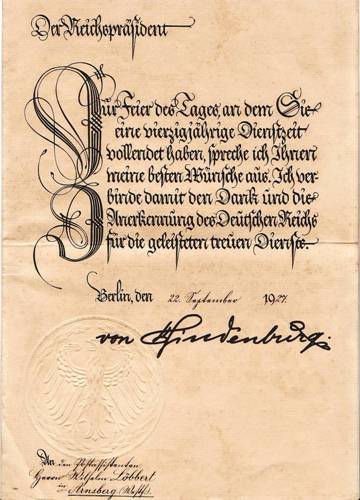 Der Reichspräsident
Zur Feier des Tages, an dem Sie
eine vierzigjährige Dienstzeit
vollendet haben, spreche ich Ihnen
meine besten Wünsche aus. Ich ver-
binde damit den Dank und die
Anerkennung des Deutschen Reichs
für die geleisteten treuen Dienste.
Berlin, den 22. September 1927.
von Hindenburg.
An den Postassistenten
Herrn Wilhelm Löbbert
in
Arnsberg (Westf).